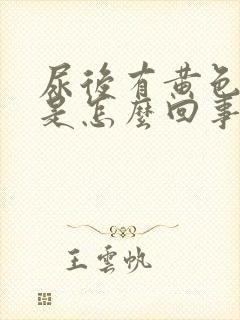 尿後有黃色
是怎麼回事
王雲帆